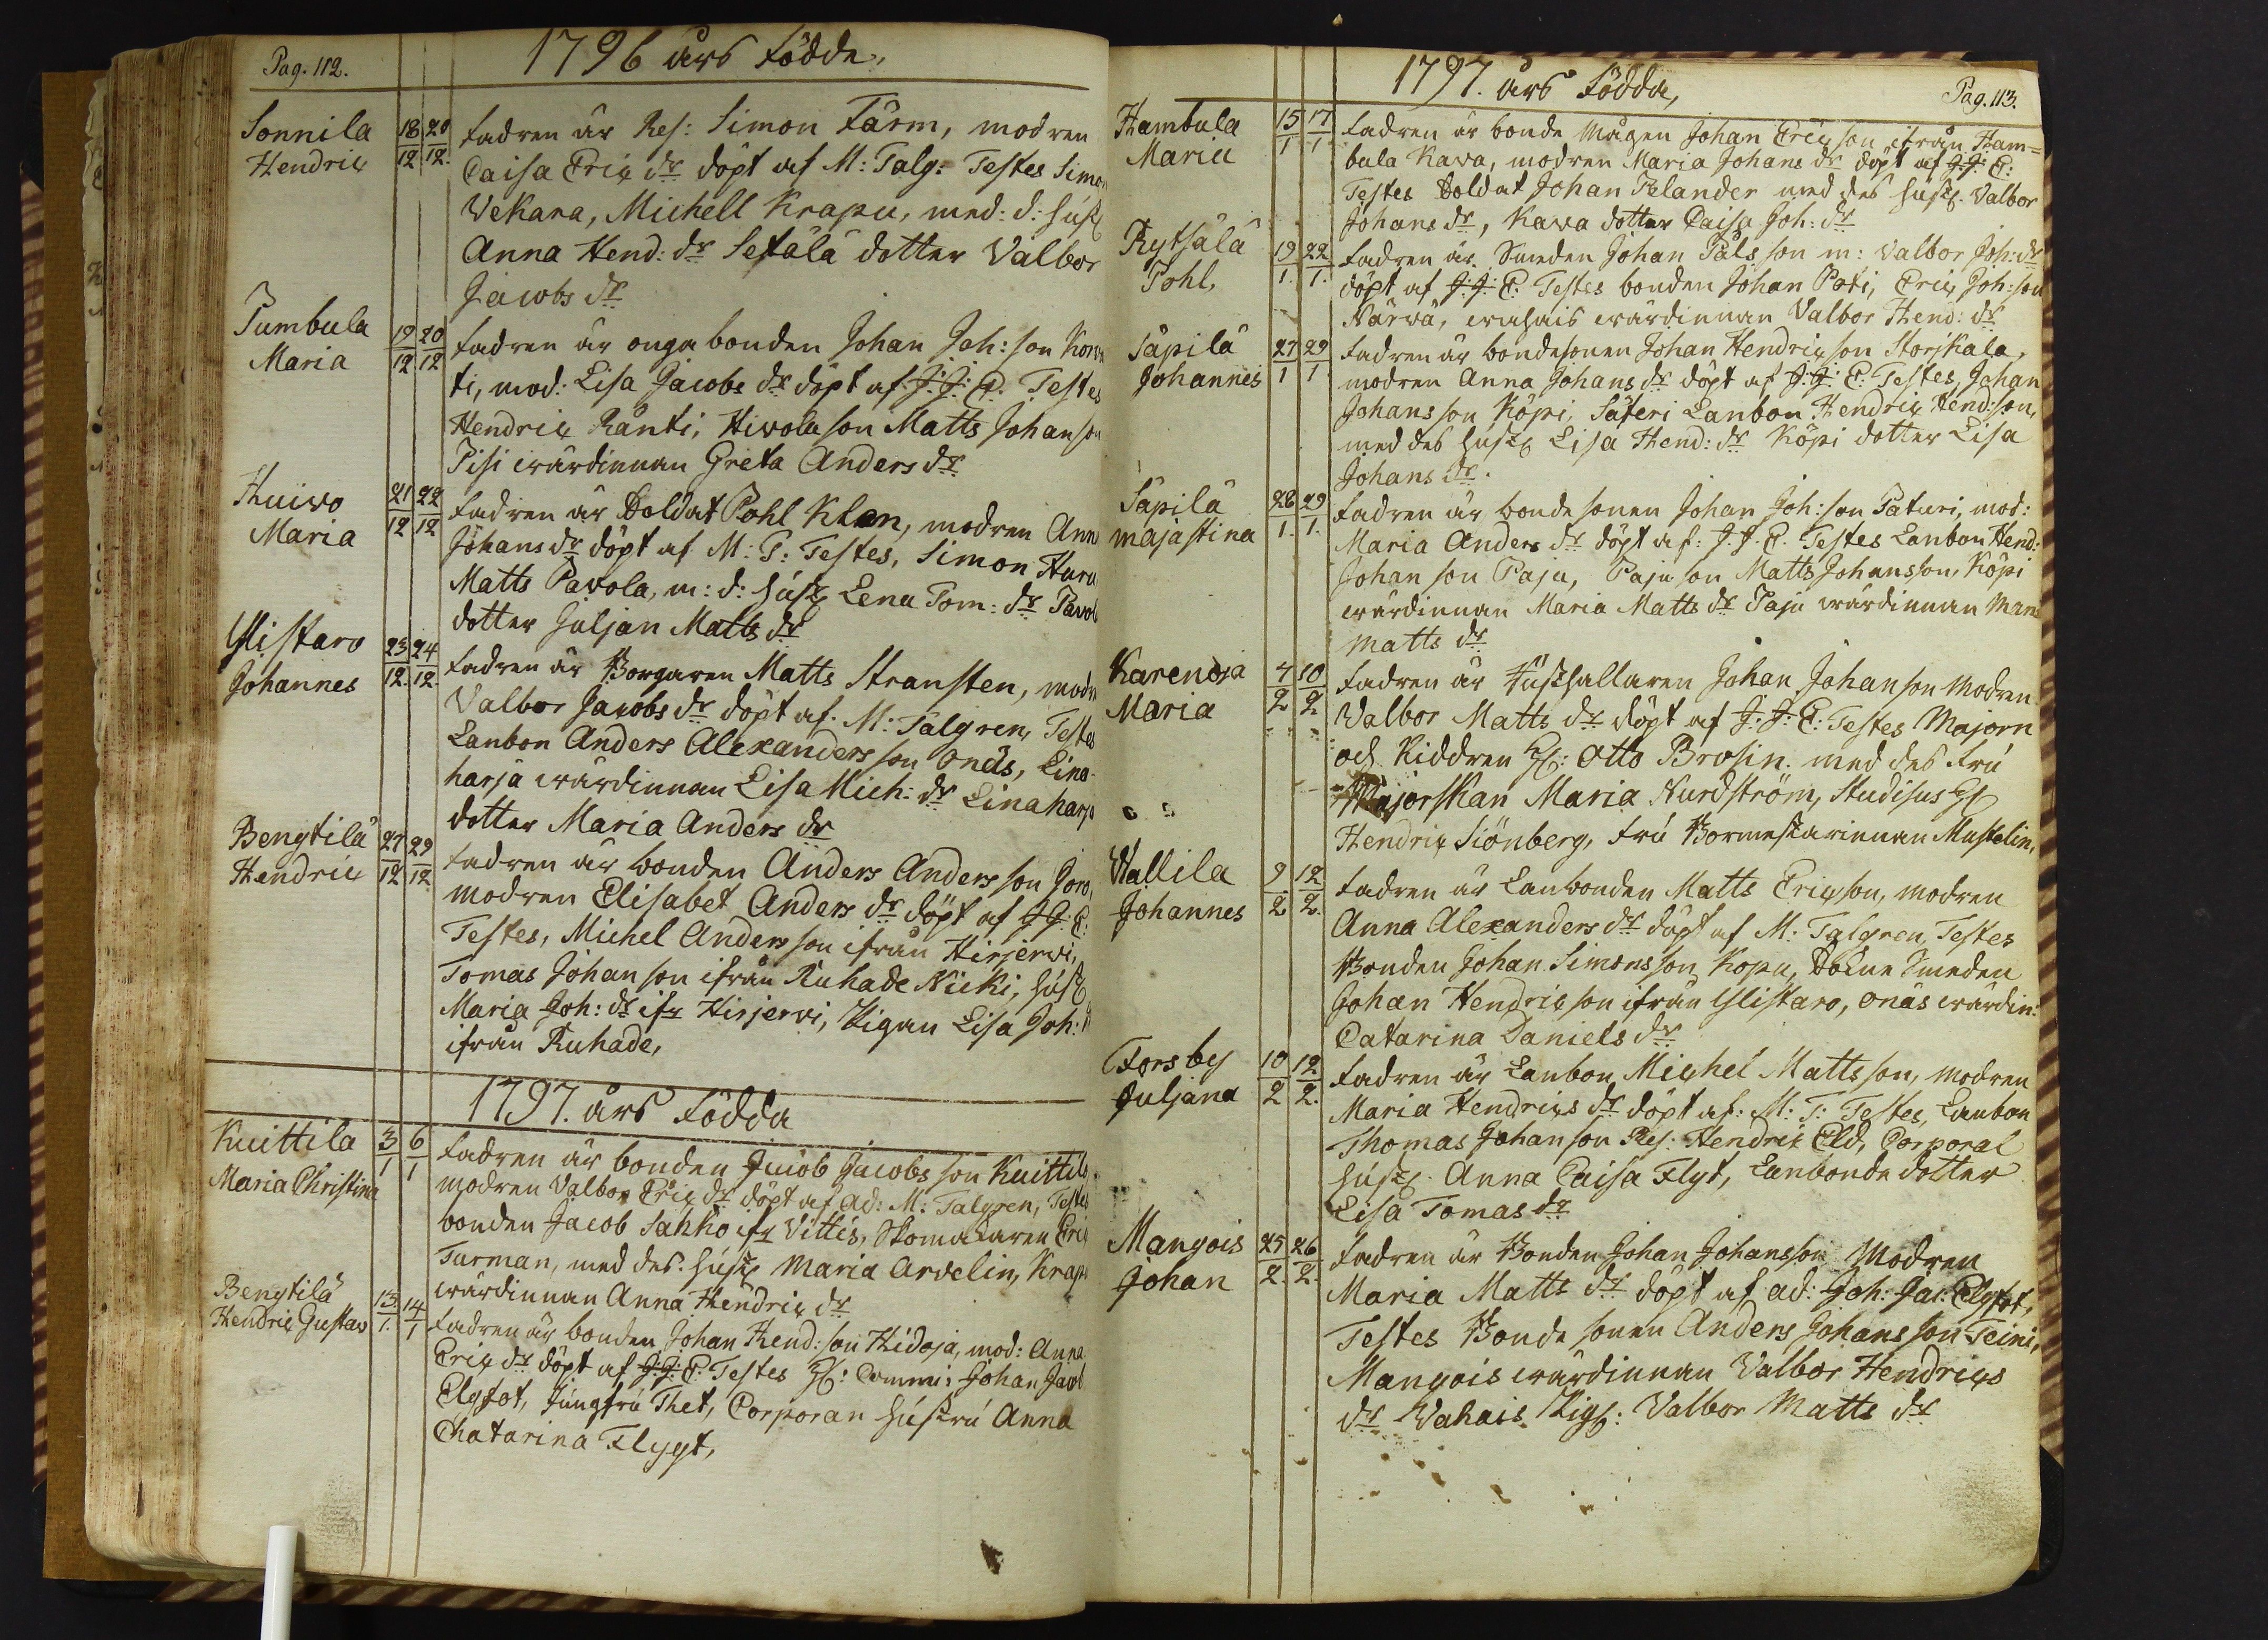 Pag. 112.
1796 års födde,
Sonnila 18/12 20/12. fadren är Res: Simon Färm, modren
Hendric Caisa Eric dr döpt af M: Talg: Testes Simon
Wekara, Michell Krapu, med: d: hust
Anna Hend: dr Setälä dotter Valbor
Jacobs dr
Tumbula 19/12 20/12 fadren är onga bonden Johan Joh: son
Maria ti, mod: Lisa Jacobs dr döpt af J: J: E: Testes
Hendric Ranti, Hivola son Matts Johan son
Pisi wärdinnan Greta Anders dr
Huivo 21/12 22/12 fadren är Soldat Pohl Klen, modren Ann
Maria Johans dr döpt af M: T: Testes, Simon
Matts Pavola, m: d: hust Lena Tom: dr Pavol
dotter Juljan Matts dr
Ylistaro 23/12. 24/12. fadren är Borgaren Matts Stransten, modr
Johannes Valbor Jacobs dr döpt af. M: Talgren, Testes
Lanbon Anders Alexanders son Onäs, Lina
harja wärdinnan Lisa Mich: dr Linaharja
dotter Maria Anders dr
Bengtilä 27/12 29/12 fadren är bonden Anders Anders son
Hendric modren Elisabet Anders dr döpt af J J: E:
Testes, Michel Anders son ifrån Hirjervi,
Tomas Johan son ifrån Ruhade Nicki, hust
Maria Joh: dr ifr Hirjervi, Pigan Lisa Joh:
ifrån Ruhade,
1797. års födda
Kuittila 3/1 6/1 fadren är bonden Jacob Jacobs son Kuittila
Maria Christina modren Valbor Eric dr döpt af ad: M: Talgren, Testes
bonden Jacob Sahko ifr Vittis, Skomakaren Eric
Turman, med des. hust Maria Arvelin, Krapu
wärdinnan Anna Hendric dr
Bengtilä 13./1. 14/1 fadren är bonden Johan Hend: son Hidoja, mod: Anna
Hendric Gustav Eric dr döpt af J: J: E: Testes H: Commi: Johan Jacob
Elgfot, Jungfru Thet, Corporan hustru Anna
Chatarina Flygt,
1797. års födda,
Pag. 113.
Hambula 15/1 17/1 fadren är bonde mågen Johan Eric son ifrån Ham=
Maria bula Kava, modren Maria Johans dr döpt af J: J: E:
Testes Soldat Johan Felander med des hust. Valbor
Johans dr, Kava dotter Caisa Joh: dr
Rytsälä 19/1. 22/1. fadren är. Smeden Johan Påls son m: Valbor Joh: dr
Pohl, döpt af J: J: E: Testes bonden Johan Poti, Eric Joh: son
Närvä, wähäis wärdinnan Valbor Hend: dr
Säpilä 27/1 29/1 fadren är bondesonen Johan Hendric son Storskala,
Johannes modren Anna Johans dr döpt af J: J: E: Testes, Johan
Johans son Köpi, Säteri Lanbon Hendric Hend: son,
med des hust Lisa Hend: dr Köpi dotter Lisa
Johans dr.
Säpilä 28/1. 29/1. fadren är bonde sonen Johan Joh: son Paturi, mod:
majastina Maria Anders dr döpt af: J. J. E. Testes Lanbon Hend:
Johan son Paju, Paju son Matts Johansson, Köpi
wärdinnan Maria Matts dr Paju wärdinnan Mari
matts dr
Karenoja 4/2 10/2 fadren är Rusthållaren Johan Johan son modren
Maria Valbor Matts dr döpt af J: J: E: Testes Majorn
och Riddren H: Otto Brosin. med des fru
Majorskan Maria Nurdström, Studisus H
Hendric Siönberg, fru Bormestarinnan Mustelin,
Wallila 9/2 12/2. fadren är Lanbonden Matts Eric son, modren
Johannes Anna Alexanders dr döpt af M: Talgren, Testes
Bonden Johan Simonsson Kopu, Sokne Smeden
Johan Hendric son ifrån Ylistaro, Onäs wärdin:
Catarina Daniels dr
Forsby 10/2 12/2. fadren är Lanbon Michel Matts son, modren
Juljana Maria Hendrics dr döpt af: M: T: Testes, Lanbon
Thomas Johan son Res. Hendric Eld, Corporal
hust. Anna Caisa Flyt, Lanbonde dotter
Lisa Tomas dr
Mangois 25/2. 26/2. fadren är Bonden Johan Johansson Modren
Johan Maria Matts dr döpt af ad: Joh: Jac: Elgfot,
Testes Bonde sonen Anders Johans son Teini,
Mangois wärdinnan Valbor Hendrics
dr Wahais Pig: Valbor Matts dr